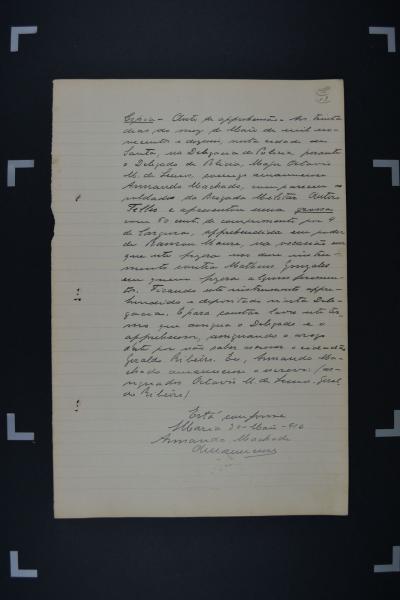 Copia - Auto de apprehensão - Aos trinta
dias do mez de Maio de mil no-
vecentos e dezeseis, nesta cidade de
Santa, na Delegacia de Policia, presente
o Delegado de Policia, Major Octavio
M. de Lemos, commigo amanuense
Armando Machado, compareceu o
soldado da Brigada Militar Antero
Telles e apresentou uma
com 80 cent. de comprimento por 4
de largura, apprehendida em poder
de Ramon Maure, na occasião em
que este fizera uso desse instru-
mento contra Matheus Gonzales
em quem fizera alguns ferimen-
tos. Ficando este instrumento appre-
hendido e depositado nesta Dele-
gacia. E para constar lavro este ter-
mo que assigna o Delegado e o
apprehensor, assignando a rogo
deste por não saber escrever o cidadão
Geraldo Ribeiro. Eu, Armando Ma-
chado amanuense o escrevi. (as-
signados Octavio M. de Lemos - Geral-
do Ribeiro)
Está conforme
S. Maria 30 - Maio - 916
Armando Machado
Amanuense